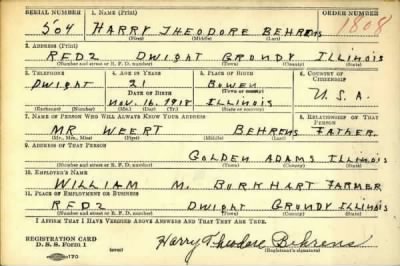 SERIAL NUMBER 1. NAME (Print) ORDER NUMBER
504 HARRY THEODORE BEHRENS 1808
(First) (Middle) (Last)
2. ADDRESS (Print)
RFD2 Dwight GRUNDY ILLINOIS
(Number and street or R. F. D. number) (Town) (County) (State)
3. TELEPHONE 4. AGE IN YEARS 5. PLACE OF BIRTH 6. COUNTRY OF CITIZENSHIP
Dwight 21 Bowen
DATE OF BIRTH (Town or county)
Nov. 16. 1918 ILLINOIS U.S.A.
(Exchange) (No.) (Mo.) (Day) (Yr.) (State or country)
7. NAME OF PERSON WHO WILL ALWAYS KNOW YOUR ADDRESS 8. RELATIONSHIP OF THAT PERSON
MR WEERT BEHRENS FATHER
(Mr., Mrs., Miss) (First) (Middle) (Last)
9. ADDRESS OF THAT PERSON
GOLDEN ADAMS ILLINOIS
(Number and street or R. F. D. number) (Town) (County) (State)
10. EMPLOYER'S NAME
WILLIAM M. BURKHART FARMER
11. PLACE OF EMPLOYMENT OR BUSINESS
RFD2 Dwight GRUNDY ILLINOIS
(Number and street or R. F. D. number) (Town) (County) (State)
I AFFIRM THAT I HAVE VERIFIED ABOVE ANSWERS AND THAT THEY ARE TRUE.
REGISTRATION CARD
D. S. S. Form 1 (over) Harry Theodore Behrens
(Registrant's signature)